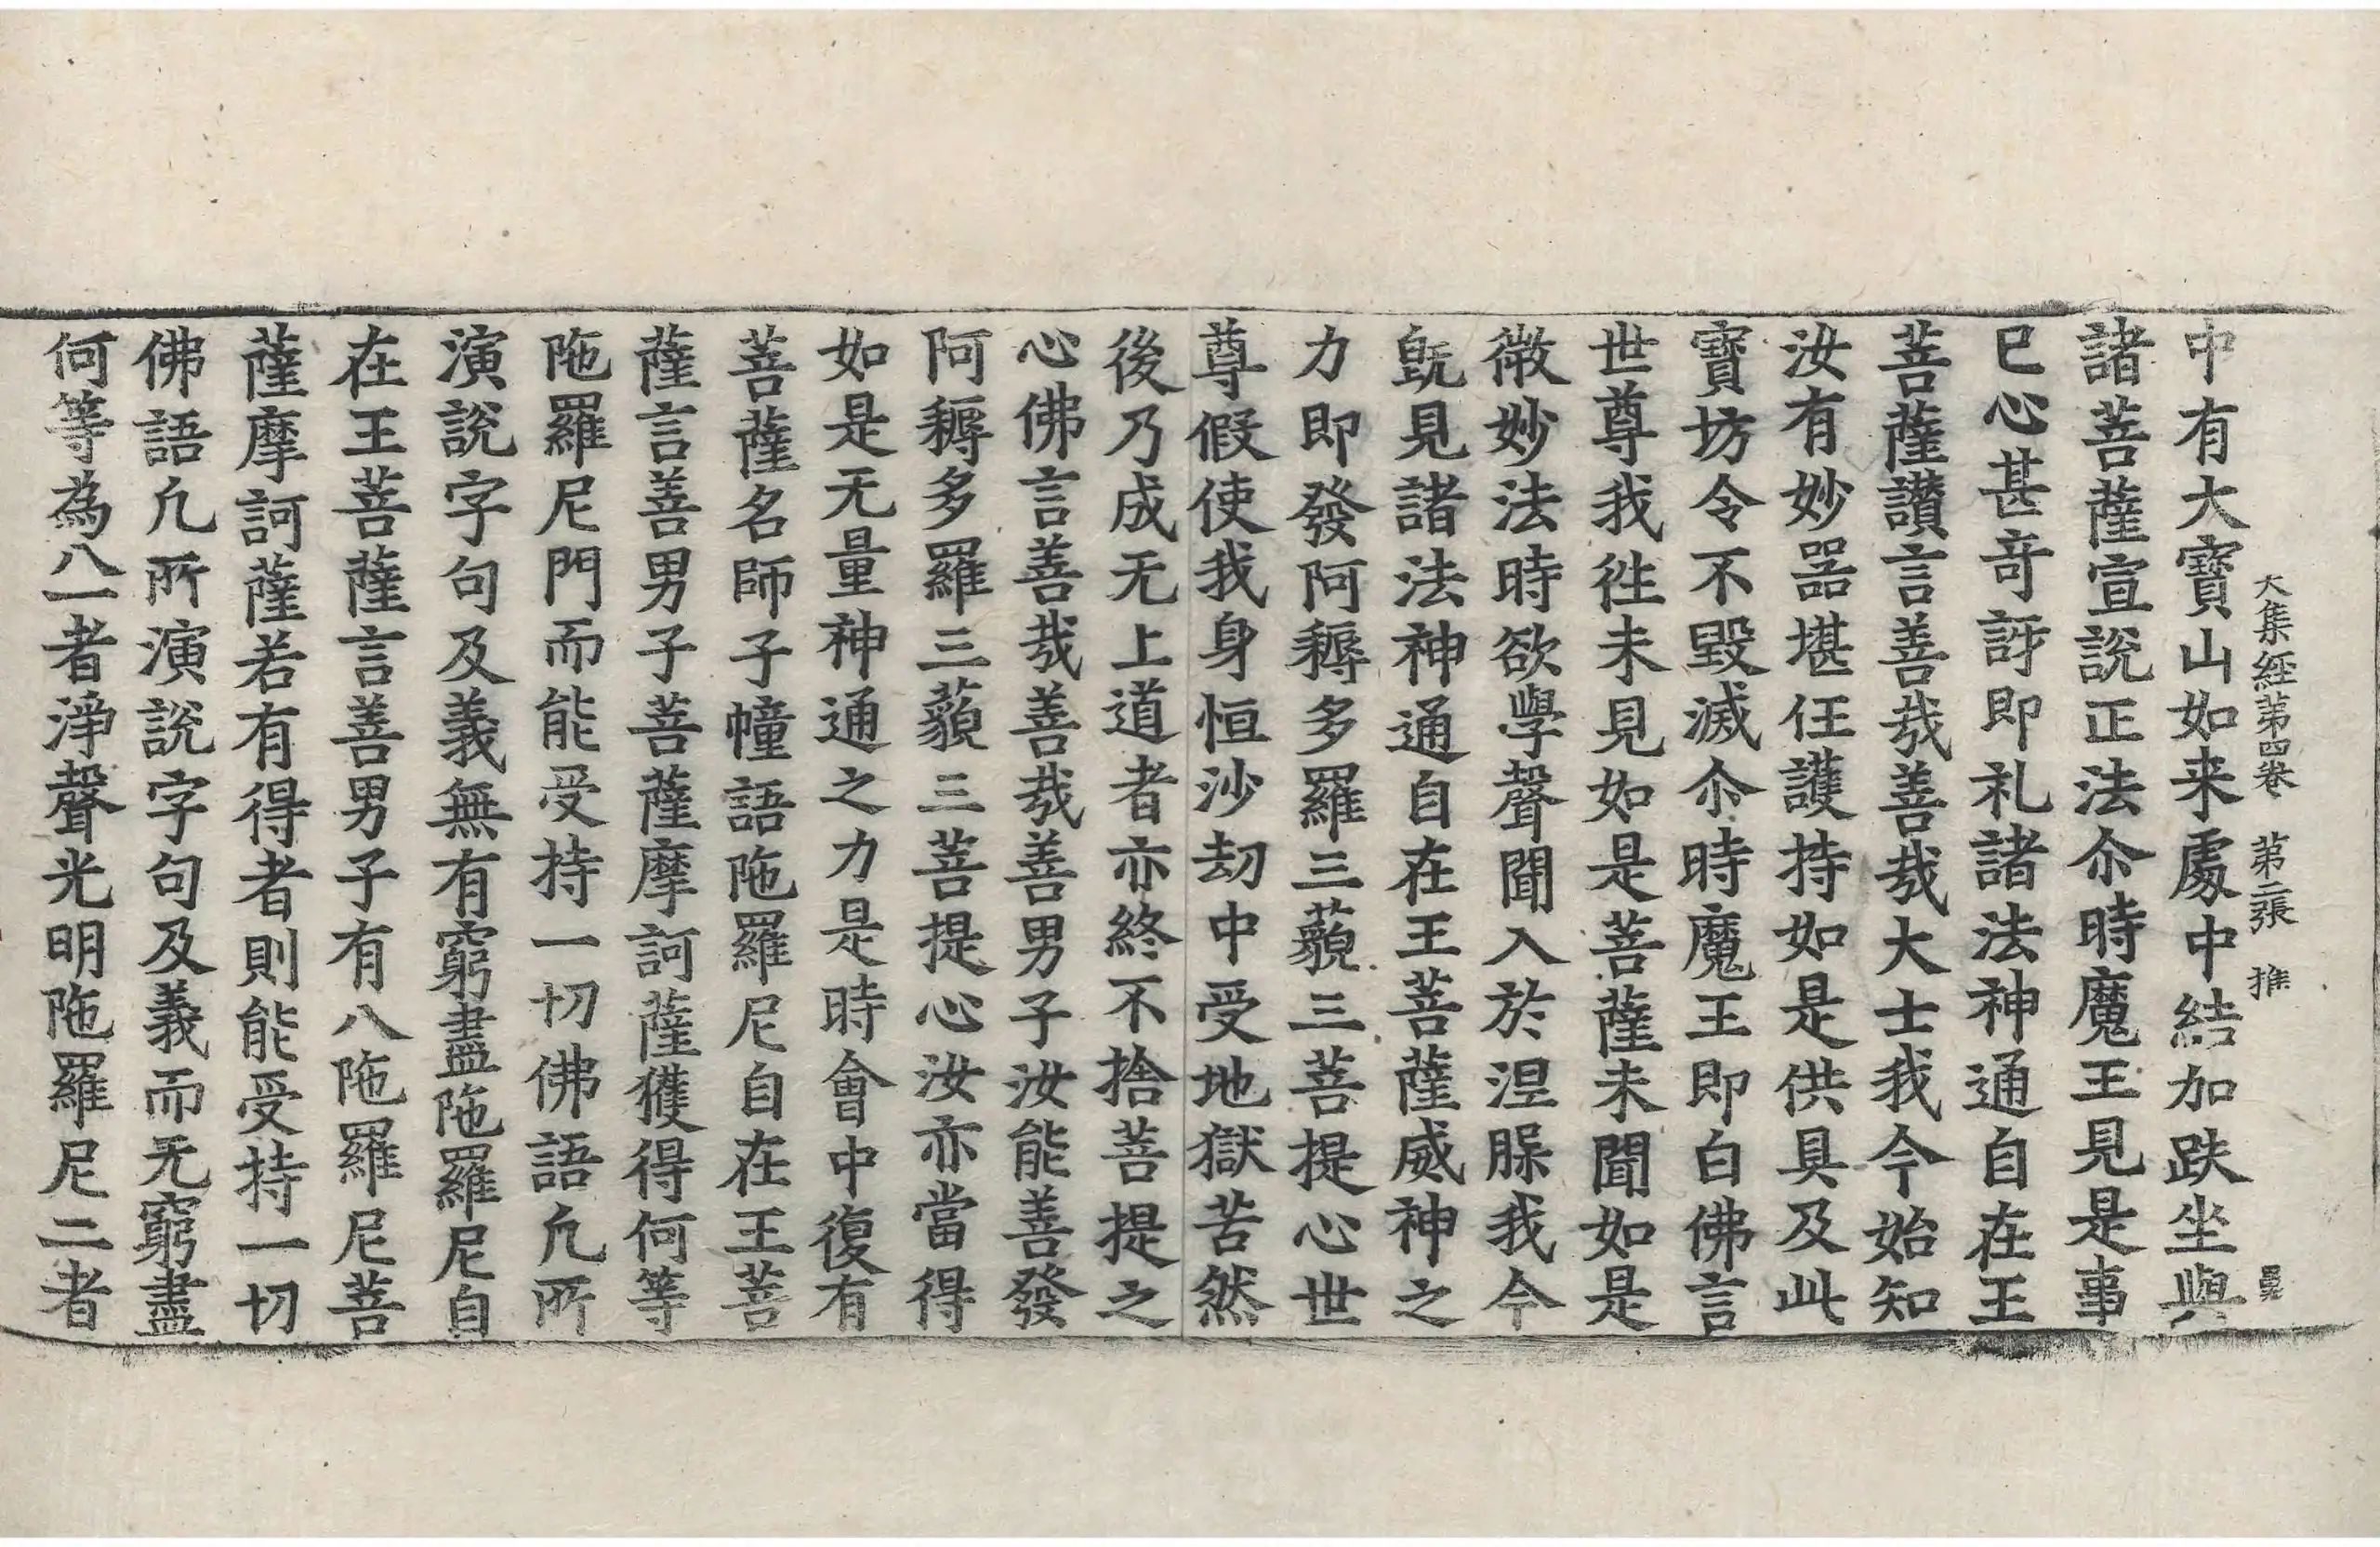 大集経第四巻 第二張 推
中有大寶山如来處中結加趺坐與
諸菩薩宣說正法尒時魔王見是事
已心甚竒訝即礼諸法神通自在王
菩薩讃言善㢤善㢤大士我今始知
汝有妙器堪任護持如是供具及此
寶坊令不毀滅尒時魔王即白佛言
世尊我徃未見如是菩薩未聞如是
微妙法時欲學聲聞入於涅槃我今
既見諸法神通自在王菩薩威神之
力即發阿耨多羅三藐三菩提心世
尊假使我身恒沙劫中受地獄苦然
後乃成无上道者亦終不捨菩提之
心佛言善㢤善㢤善男子汝能善發
阿耨多羅三藐三菩提心汝亦當得
如是无量神通之力是時會中復有
菩薩名師子幢語陁羅尼自在王菩
薩言善男子菩薩摩訶薩獲得何等
陁羅尼門而能受持一切佛語凢所
演說字句及義無有窮盡陁羅尼自
在王菩薩言善男子有八陁羅尼菩
薩摩訶薩若有得者則能受持一切
佛語凢所演說字句及義而无窮盡
何等為八一者淨聲光明陁羅尼二者